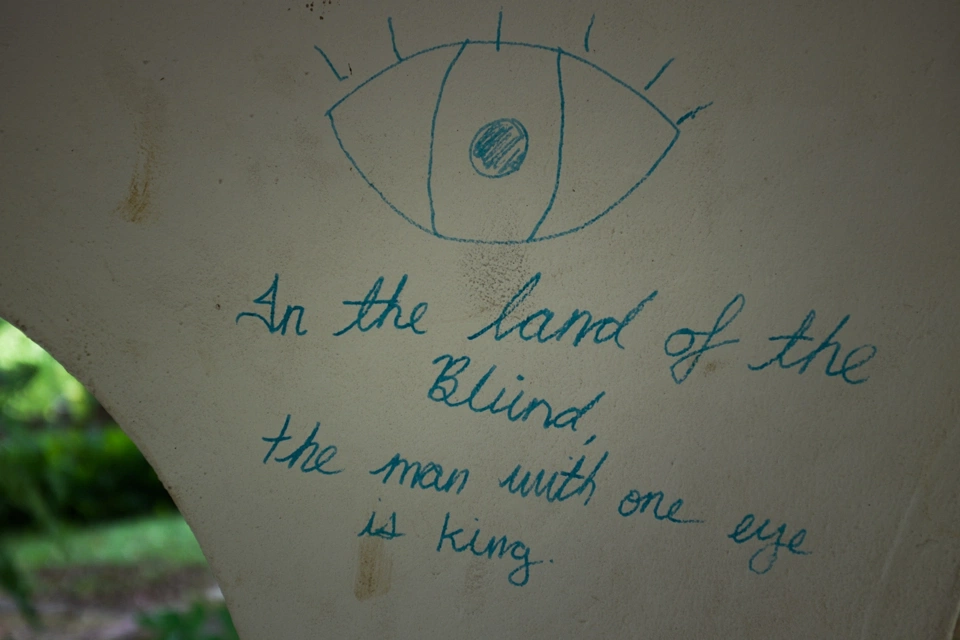 In the land of the
Blind,
the man with one eye
is king.